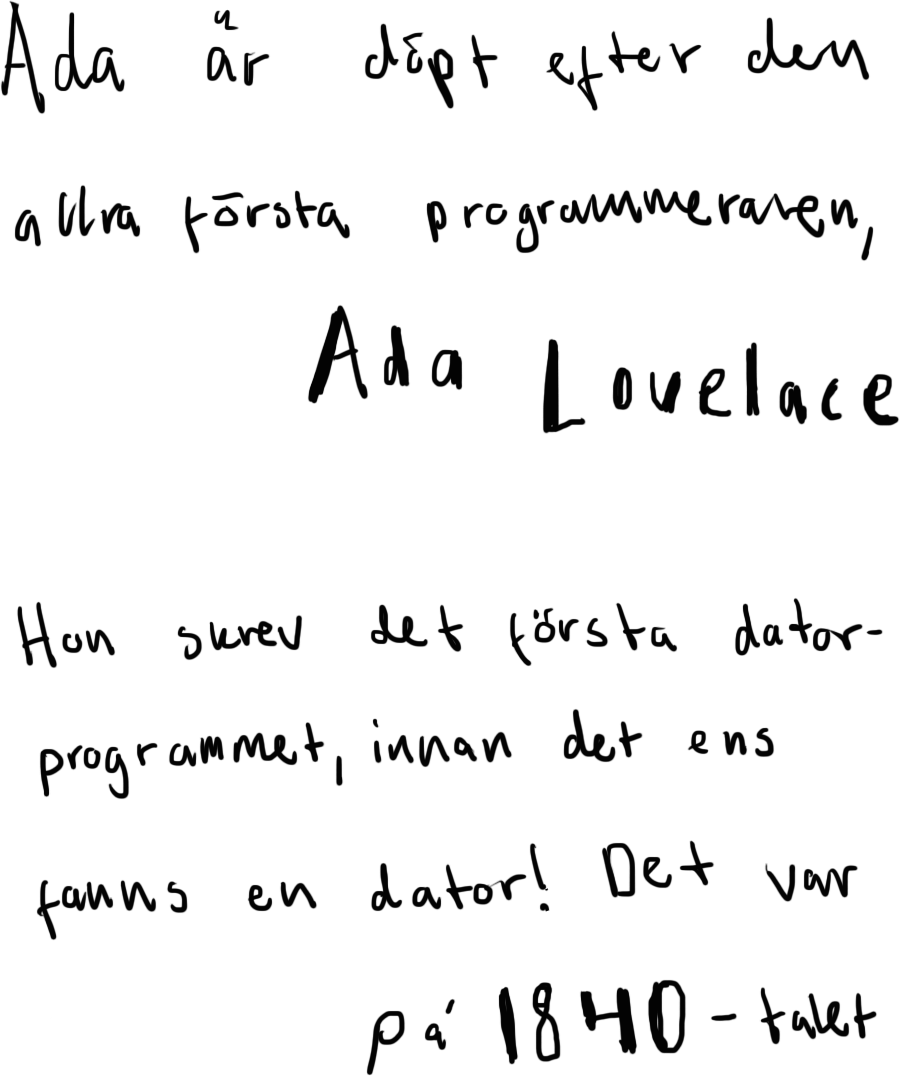 Ada är döpt efter den
allra första programmeraren,
Ada Lovelace
Hon skrev det första dator-
programmet, innan det ens
fanns en dator! Det var
på 1840-talet